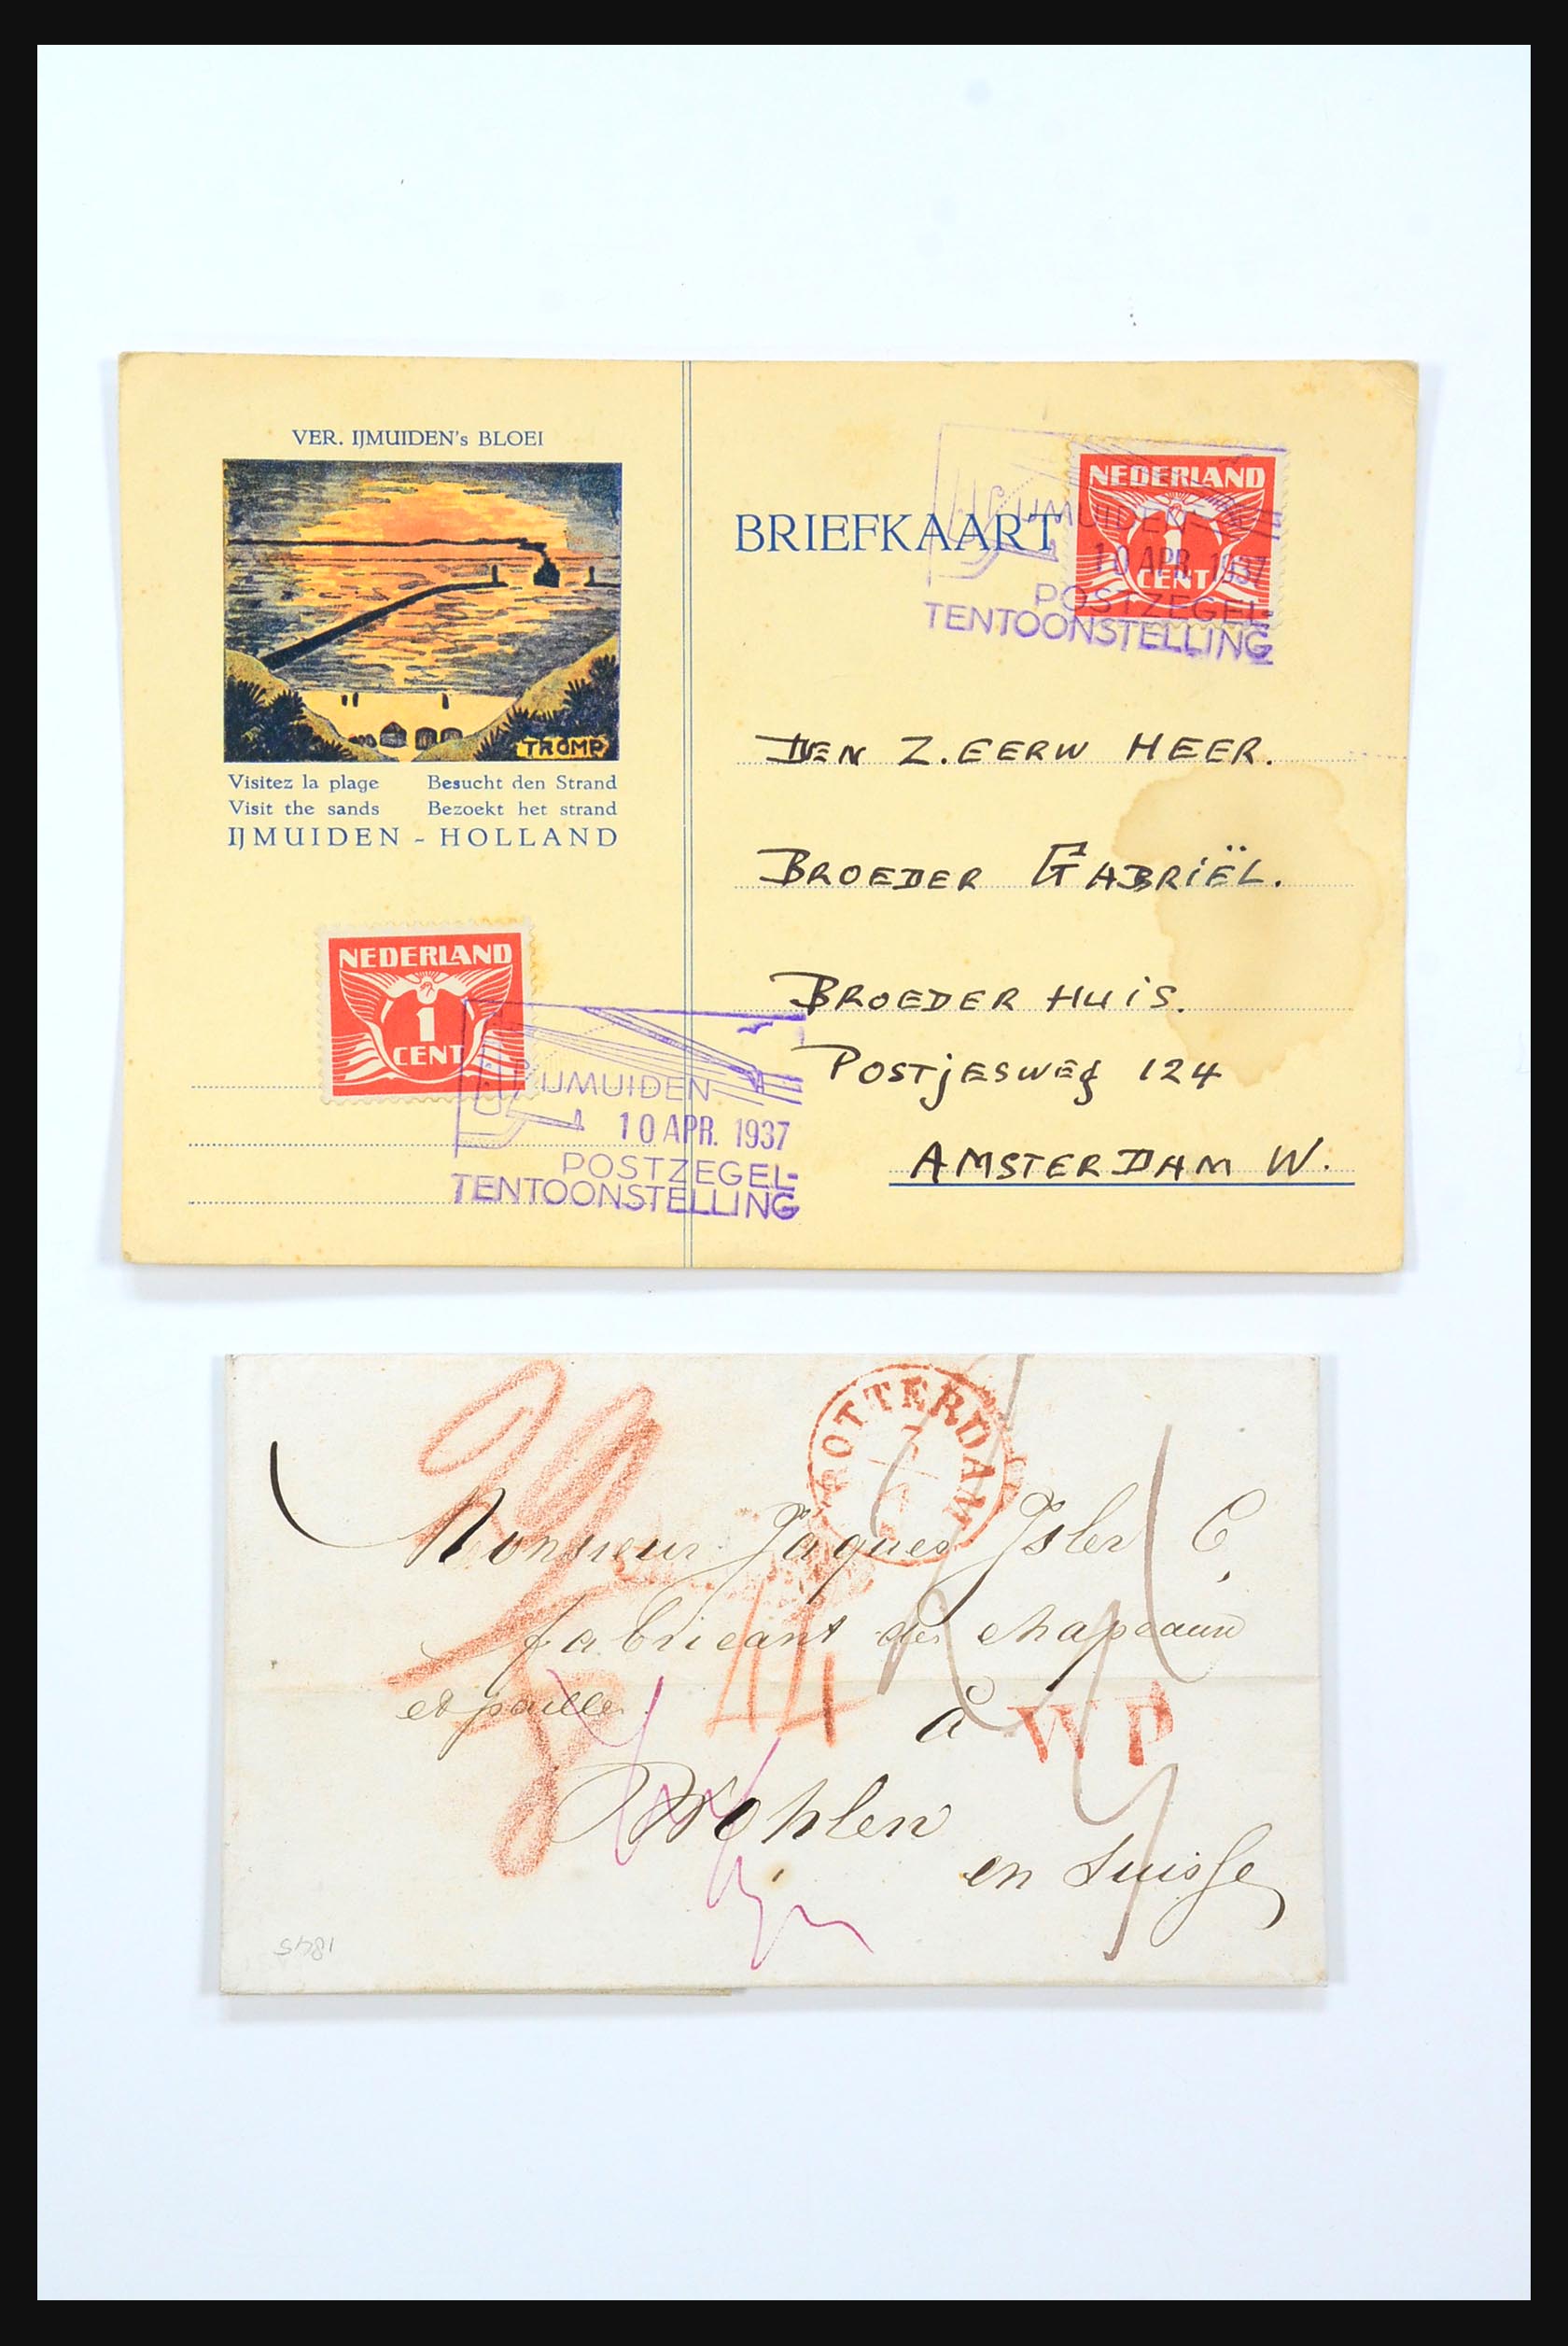 VER. IJMUIDEN's BLOEI
TROMP
Visitez la plage Besucht den Strand
Visit the sands Bezoekt het strand
IJMUIDEN - HOLLAND
BRIEFKAART
NEDERLAND
1
CENT
IJMUIDEN
10 APR. 1937
POSTZEGEL-
TENTOONSTELLING
DEN Z.EERW HEER.
BROEDER GABRIËL.
BROEDER HUIS.
POSTJESWEG 124
AMSTERDAM W.
NEDERLAND
1
CENT
IJMUIDEN
10 APR. 1937
POSTZEGEL-
TENTOONSTELLING
ROTTERDAM
Monsieur Jaques Isler C.
fabricant de chapeaux
et paille
à
WP
44
Wohlen
en Suisse
1845